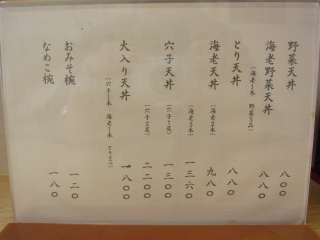 野菜天丼 八〇〇
海老野菜天丼 八八〇
(海老1本 野菜3品)
とり天丼 八八〇
海老天丼 (海老2本) 九八〇
(海老3本) 一三六〇
穴子天丼 一三〇〇
二二〇〇
大入り天丼 一八〇〇
おみそ椀 一二〇
なめこ椀 一八〇